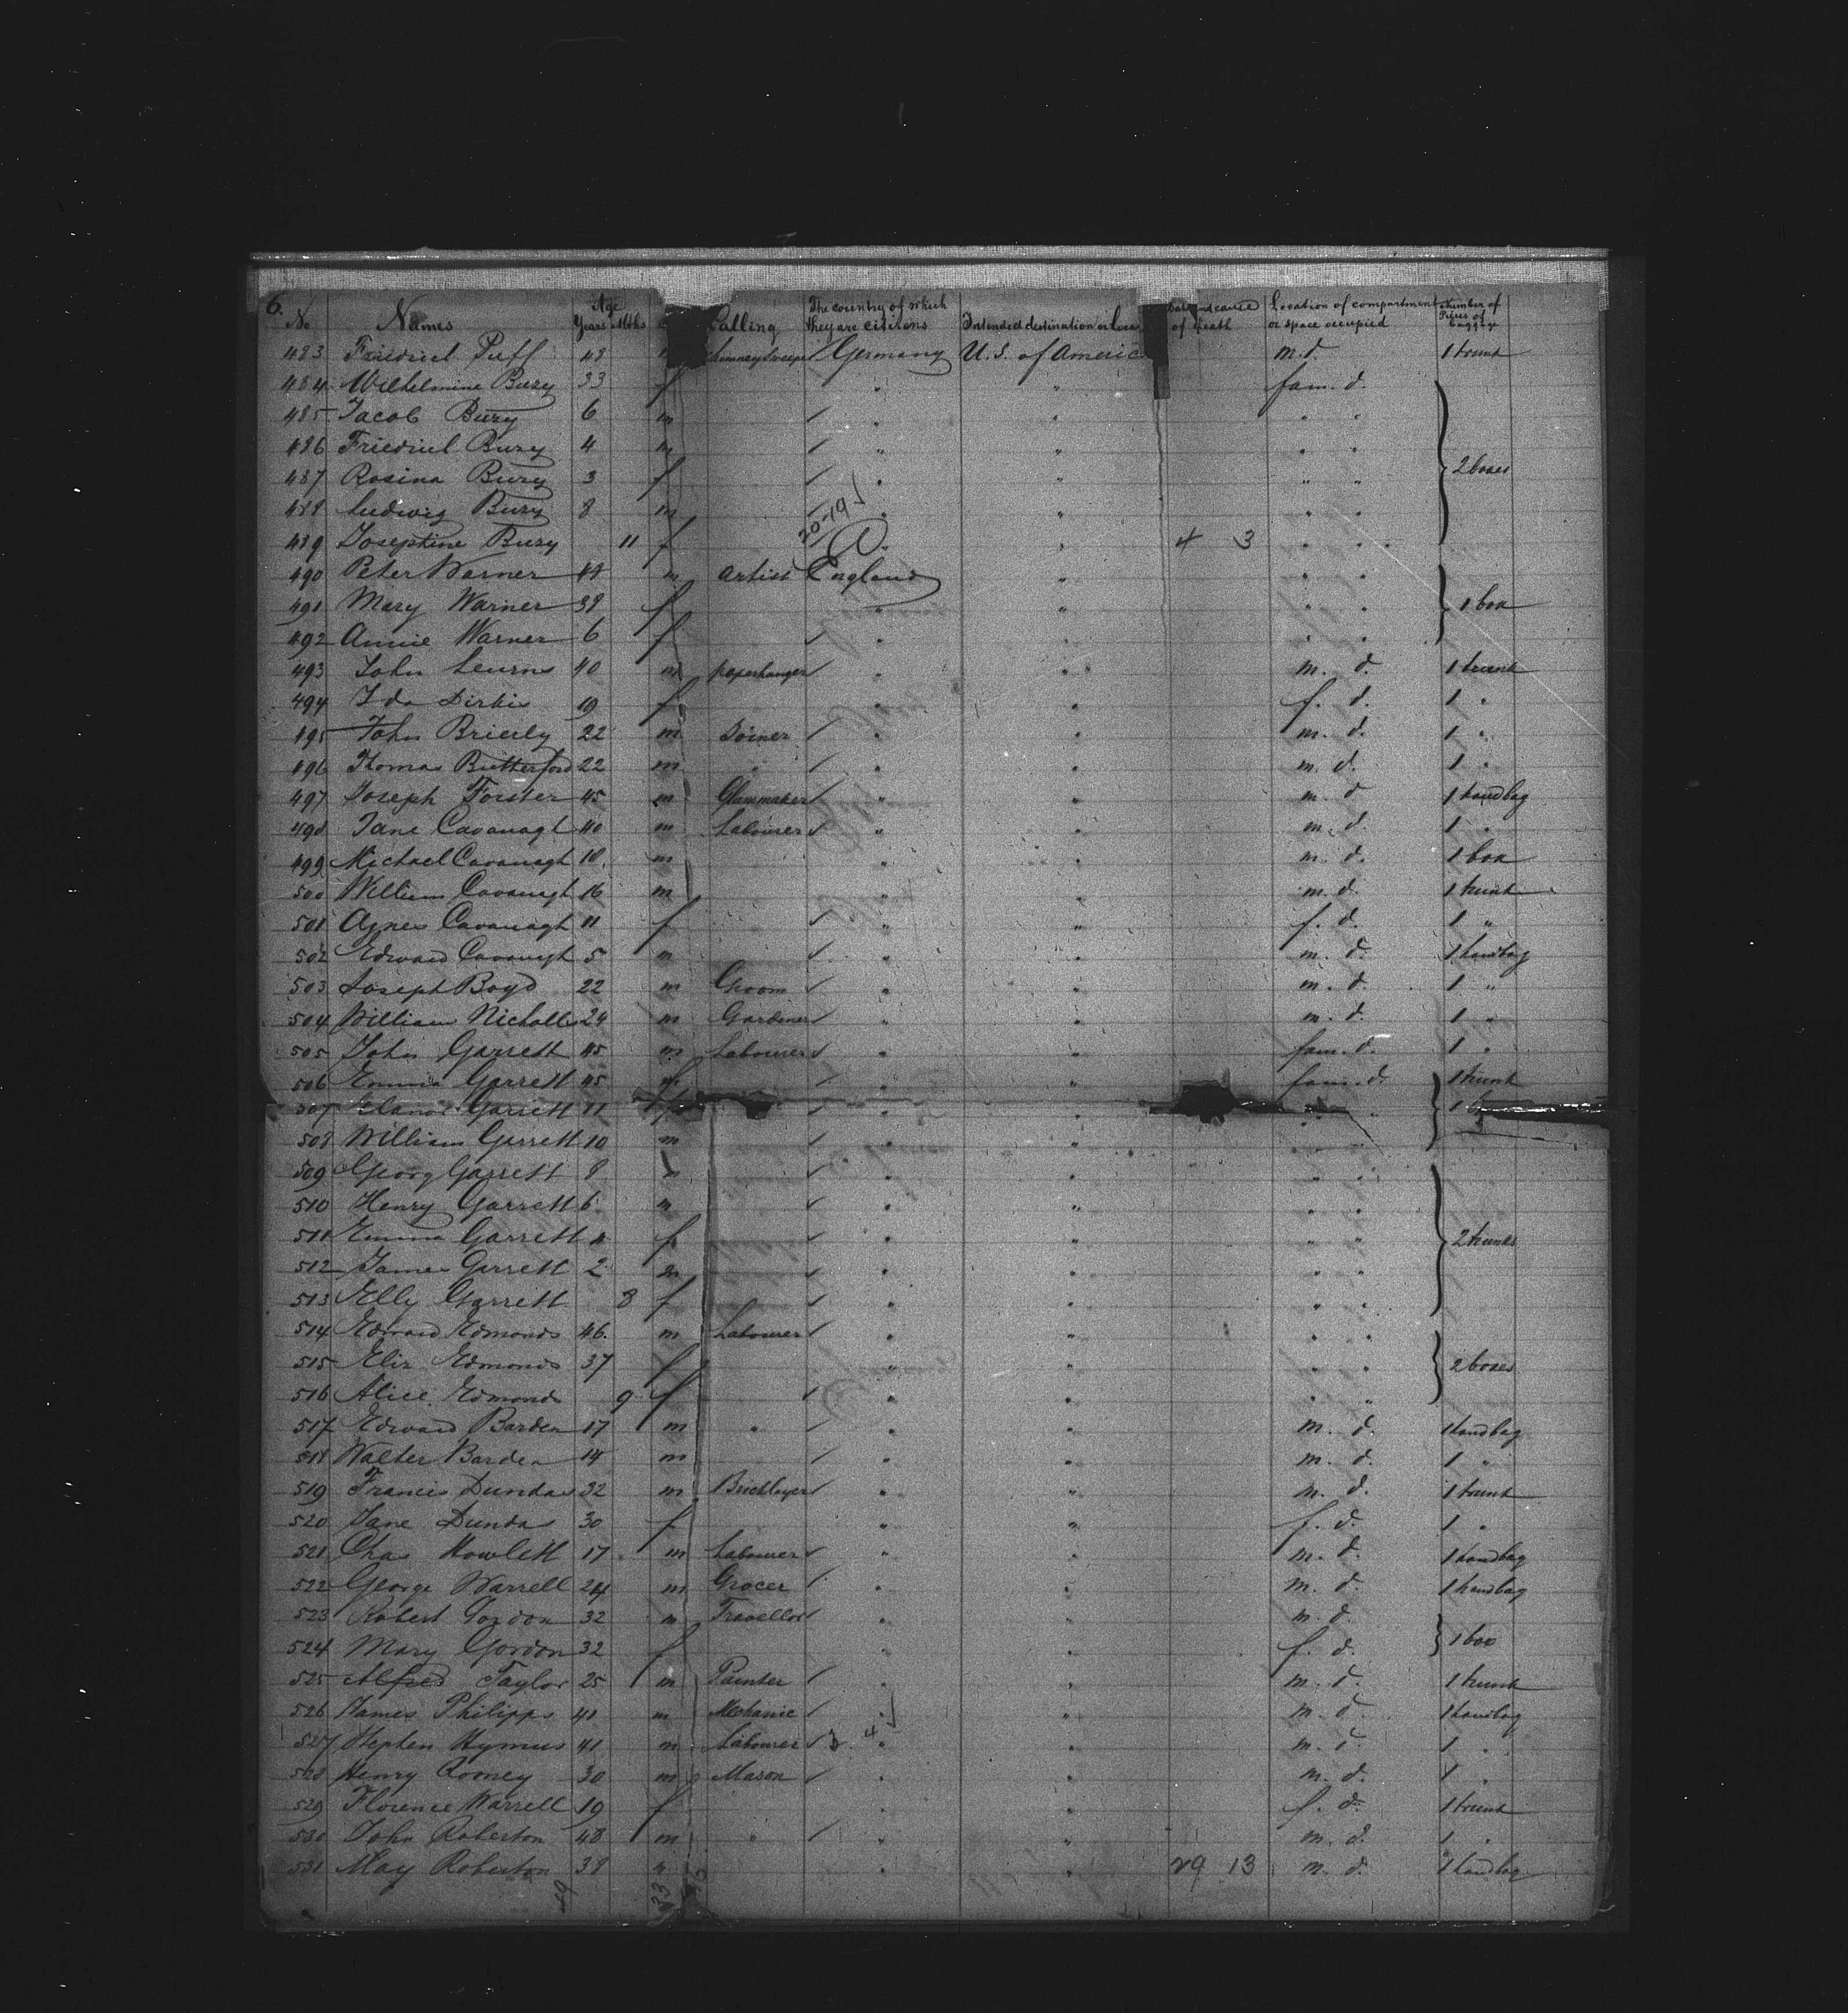 6.
No Names Age Years Mths Calling The country of which they are citizens Intended destination or Date and cause of death Location of compartment or space occupied Number of Pieces of baggage
483 Friedrich Puff 48 Chimney Sweeper Germany U.S. of America m.d. 1 trunk
484 Wilhelmine Bury 33 f " " fam. d.
485 Jacob Bury 6 m " " " "
486 Friedrich Bury 4 m " " " "
487 Rosina Bury 3 f " " " " 2 boxes
488 Ludwig Bury 8 m " " " "
20-19
489 Josephine Bury 11 f " " 4 3 " "
490 Peter Warner 44 m Artist England " " "
491 Mary Warner 38 f " " " " 1 box
492 Annie Warner 6 f " " " "
493 John 40 m paperhanger " " m. d. 1 trunk
494 Ida Dirkis 19 f " " f. d. 1 "
495 John Brierly 22 m Joiner " " m. d. 1 "
496 Thomas 22 m " " " m. d. 1 "
497 Joseph Forster 45 m Glassmaker " " m. d 1 handbag
498 Jane Cavanagh 40 m Labourer " " m. d. 1 "
499 Michael Cavanagh 18 m " " m. d. 1 box
500 William Cavanagh 16 m " " m. d. 1 trunk
501 Agnes Cavanagh 11 f " " f. d. 1 "
502 Edward Cavanagh 5 m " " m. d. 1 handbag
503 Joseph Boyd 22 m Groom " " m. d. 1 "
504 William Nicholls 24 m Gardener " " m. d. 1 "
505 John Garrett 45 m Labourer " " fam. d. 1 "
506 Emma Garrett 45 f " " fam. d. 1 trunk
507 Elanor Garrett 11 f " " " " 1
508 William Garrett 10 m " " " "
509 Georg Garrett 8 m " " " "
510 Henry Garrett 6 m " " " "
511 Emma Garrett 4 f " " " " 2 trunks
512 James Garrett 2 m " " " "
513 Elly Garrett 8 f " " " "
514 Edward Edmonds 46 m Labourer " " " "
515 Eliz Edmonds 37 f " " " " 2 boxes
516 Alice Edmonds 9 f " " " "
517 Edward Barden 17 m " " " m. d. 1 handbag
518 Walter Barden 14 m " " m. d. 1 "
519 Francis Dundas 32 m Bricklayer " " m. d. 1 trunk
520 Jane Dundas 30 f " " f. d. 1 "
521 Chas Howlett 17 m Labourer " " m. d. 1 handbag
522 George Warrell 24 m Grocer " " m. d. 1 handbag
523 Robert Gordon 32 m Traveller " " m. d.
524 Mary Gordon 32 f " " f. d. 1 box
525 Alfred Taylor 25 m Painter " " m. d. 1 trunk
526 James Philipps 41 m Mechanic " " m. d. 1 handbag
527 Stephen Hymus 41 m Labourer 4 " " m. d. 1 "
528 Henry Rooney 30 m Mason " " m. d. 1 "
529 Florence Warrell 19 f " " f. d. 1 trunk
530 John Roberton 48 m " " " m. d. 1 "
531 May Roberton 38 " " " 29 13 m. d. 1 handbag